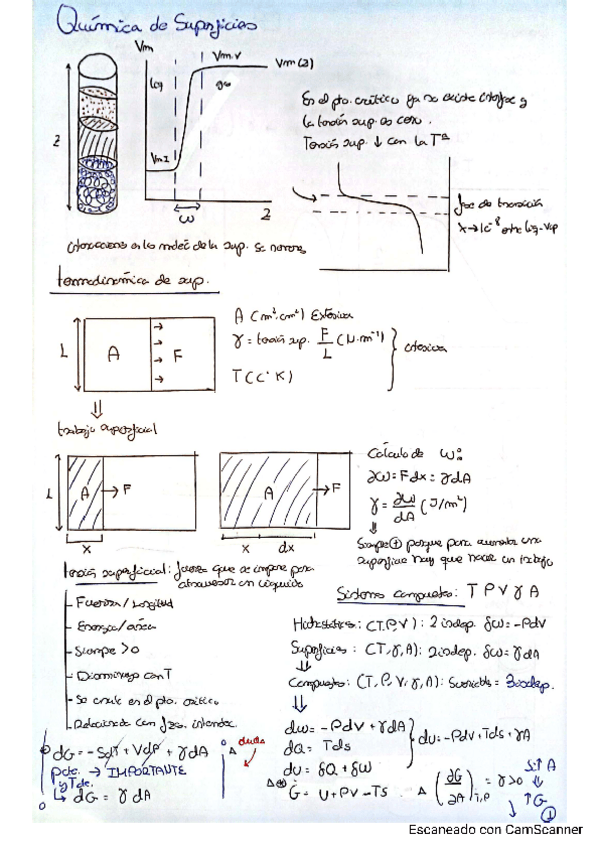 Química de Superficies
Vm
Vm,v
Vm(z)
liq
gas
Vm,l
z
ω
z
En el pto. crítico ya no existe interfase y
la tensión sup. es cero.
Tensión sup. ↓ con la Tª
fase de transición
x→10⁻⁸ entre liq-vap
interacciones en las moléc de la sup. se
termodinámica de sup.
L
A
F
A (m², cm²) Extensiva
γ = tensión sup. F/L (N·m⁻¹)
T (Cº K)
intensiva
⇓
trabajo superficial
L
A → F
x
A → F
x dx
Cálculo de W
∂w = Fdx = γdA
γ = ∂w/dA (J/m²)
Siempre ⊕ porque para aumentar una
superficie hay que hacer un trabajo
tensión superficial: fuerza que se impone para
atravesar un líquido
- Fuerza/longitud
- Energía/área
- Siempre >0
- Disminuye con T
- Se anula en el pto. crítico
- Relacionada con fzas. intermolec.
Sistema compuesto: T P V γ A
Hidrostático: (T,P,V): 2 indep. δw = -PdV
Superficies: (T,γ,A): 2 indep. δw = γdA
⇓
Compuesto: (T,P,V,γ,A): 5 variables = 3 indep.
⇓
dw = -PdV + γdA
dQ = Tds
dU = δQ + δW
dU = -PdV + Tds + γA
G = U + PV - TS
Δ (∂G/∂A)T,P = γ>0
Si ↑ A
⇓
↑G
dG = -SdT + VdP + γdA
Pcte. y Tcte. → IMPORTANTE
↳ dG = γdA
duda
Escaneado con CamScanner